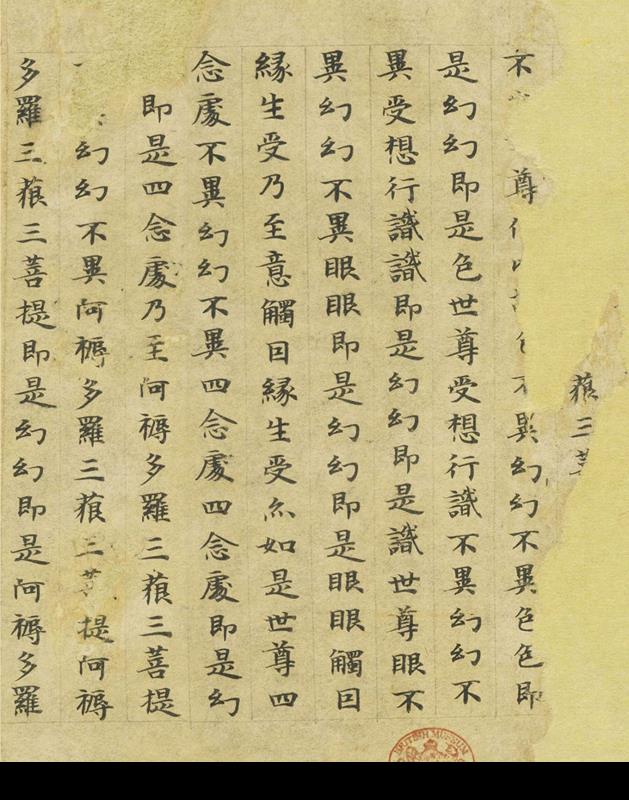 藐三菩
不尊色不異幻幻不異色色即
是幻幻即是色世尊受想行識不異幻幻不
異受想行識識即是幻幻即是識世尊眼不
異幻幻不異眼眼即是幻幻即是眼眼觸因
緣生受乃至意觸因緣生受亦如是世尊四
念處不異幻幻不異四念處四念處即是幻
即是四念處乃至阿耨多羅三藐三菩提
幻幻不異阿耨多羅三藐三菩提阿耨
多羅三藐三菩提即是幻幻即是阿耨多羅
BRITISH MUSEUM